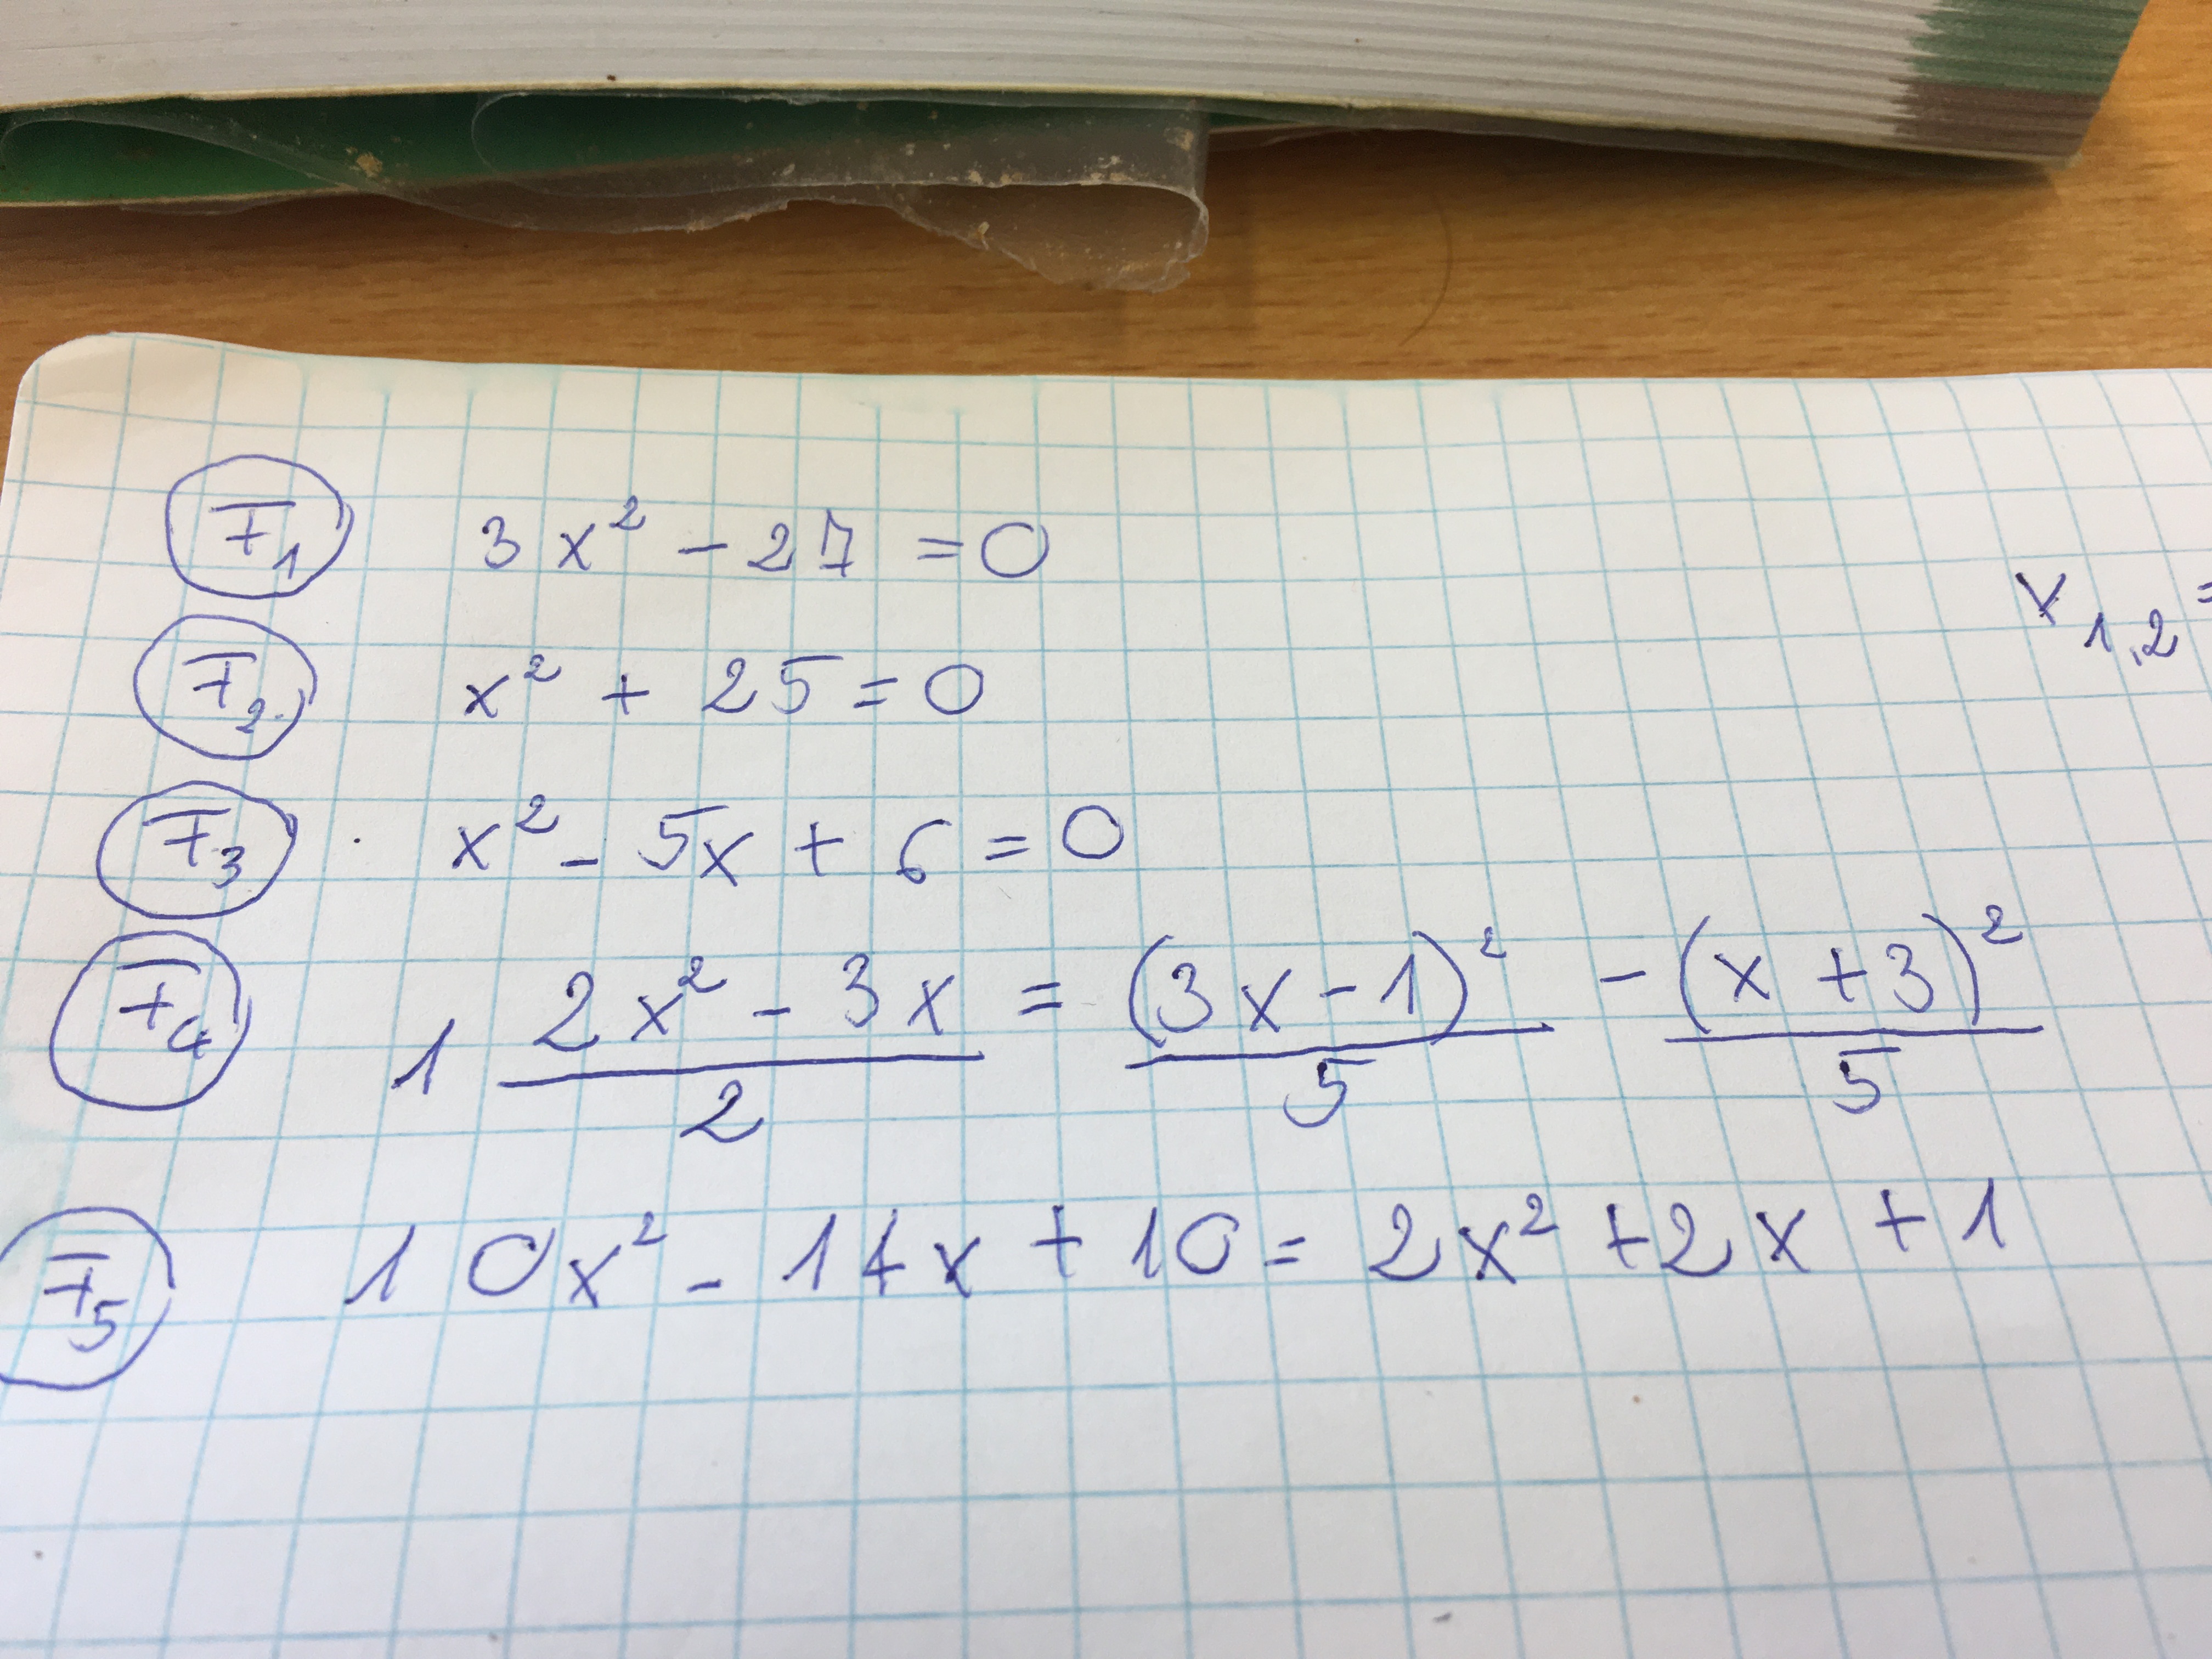 F₁ 3x² - 27 = 0
x₁,₂ =
F₂ x² + 25 = 0
F₃ · x² - 5x + 6 = 0
F₄ 1 (2x² - 3x)/2 = (3x-1)²/5 - (x+3)²/5
F₅ 10x² - 14x + 10 = 2x² + 2x + 1